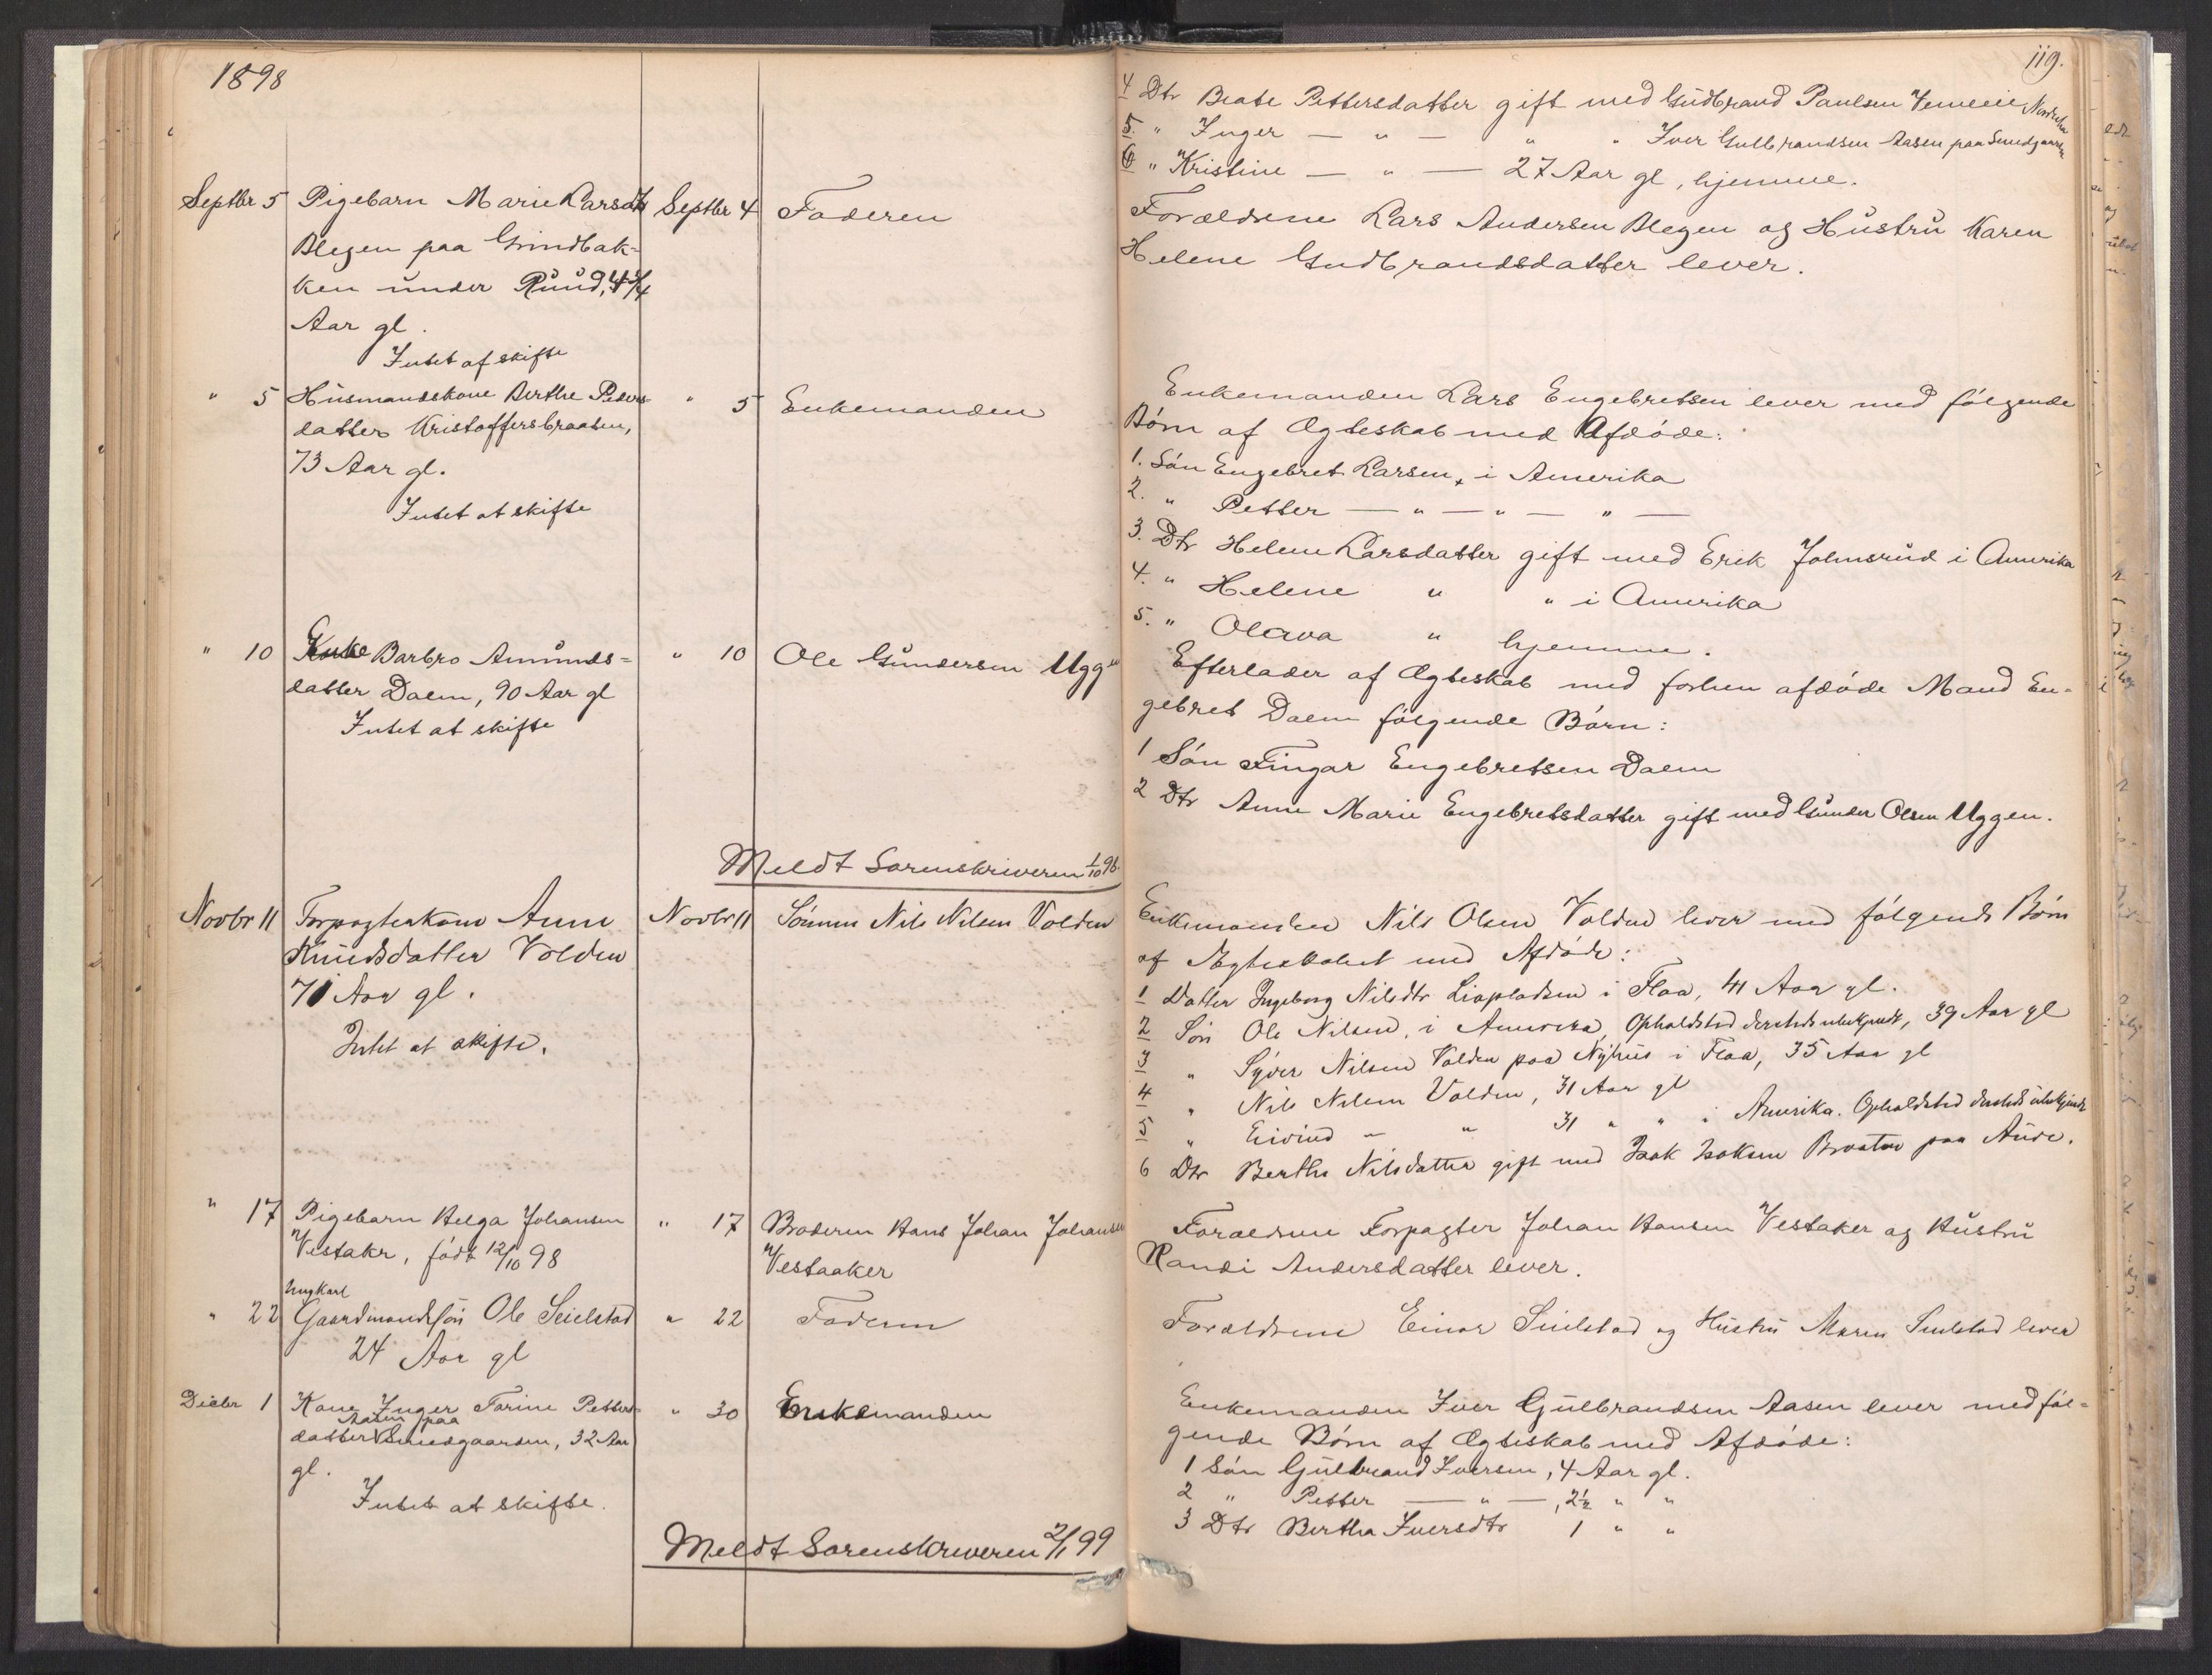 1898
Septbr 5 Pigebarn Marie Larsdtr Septbr 4 Faderen
Blegen paa Grindbak-
ken under Ruud,
Aar gl.
Intet at skifte
" 5 Husmandskone Berthe Peders- " 5 Enkemanden
datter Kristoffersbraaten,
73 Aar gl.
Intet at skifte
" 10 Enke Barbro Amunds= " 10 Ole Gundersen Uggen
datter Dalen, 90 Aar gl
Intet at skifte
Meldt Sorenskriveren 1/10 98.
Novbr 11 Forpagterkone Anne Novbr 11 Sønnen Nils Nilsen Volden
Knudsdatter Volden
71 Aar gl.
Intet at skifte.
" 17 Pigebarn Helga Johansen " 17 Broderen Hans Johan Johansen
Vestakr, født 12/10 98 Vestaaker
Ungkarl
" 22 Gaardmandssøn Ole Seielstad " 22 Faderen
24 Aar gl
Decbr 1 Kone Inger Tarine Petters- " 30 Enkemanden
Aasen paa
datter Smedgaarden, 32 Aar
gl.
Intet at skifte.
Meldt Sorenskriveren 2/1 99
119.
4 Dtr Beate Pettersdatter gift med Gudbrand Paulsen
5. " Inger — " — " " Iver Gulbrandsen Aasen paa Smedgaarden
6 " Kristine — " — 27 Aar gl, hjemme.
Forældrene Lars Andersen Blegen og Hustru Karen
Helene Gudbrandsdatter lever.
Enkemanden Lars Engebretsen lever med følgende
Børn af Ægteskab med Afdøde:
1. Søn Engebret Larsen, i Amerika
2. " Petter — " — " — " —
3. Dtr Helene Larsdatter gift med Erik Johnsrud i Amerika
4. " Helene " " i Amerika
5. " Olava " hjemme.
Efterlader af Ægteskab med forhen afdøde Mand En-
gebret Dalen følgende Børn:
1 Søn Fingar Engebretsen Dalen
2 Dtr Anne Marie Engebretsdatter gift med Gunder Olsen Uggen.
Enkemanden Nils Olsen Volden lever med følgende Børn
af Ægteskabet med Afdøde:
1 Datter Ingeborg Nilsdtr Liapladsen i Flaa, 41 Aar gl.
2 Søn Ole Nilsen, i Amerika, Opholdsted dersteds ubekjendt, 39 Aar gl
3 " Syver Nilsen Volden paa Nyhus i Flaa, 35 Aar gl
4 " Nils Nilsen Volden, 31 Aar gl
5 " Eivind " " 31 " " i Amerika. Opholdsted dersteds ubekjendt
6 Dtr Berthe Nilsdatter gift med Isak Isaksen Braaten paa Aure.
Forældrene Forpagter Johan Hansen Vestaker og Hustru
Randi Andersdatter lever.
Forældrene Einar Seielstad og Hustru Maren Seielstad lever
Enkemanden Iver Gulbrandsen Aasen lever med føl-
gende Børn af Ægteskab med Afdøde:
1 Søn Gulbrand Iversen, 4 Aar gl.
2 " Petter — " —, 2½ " "
3 Dtr Bertha Iversdtr 1 " "